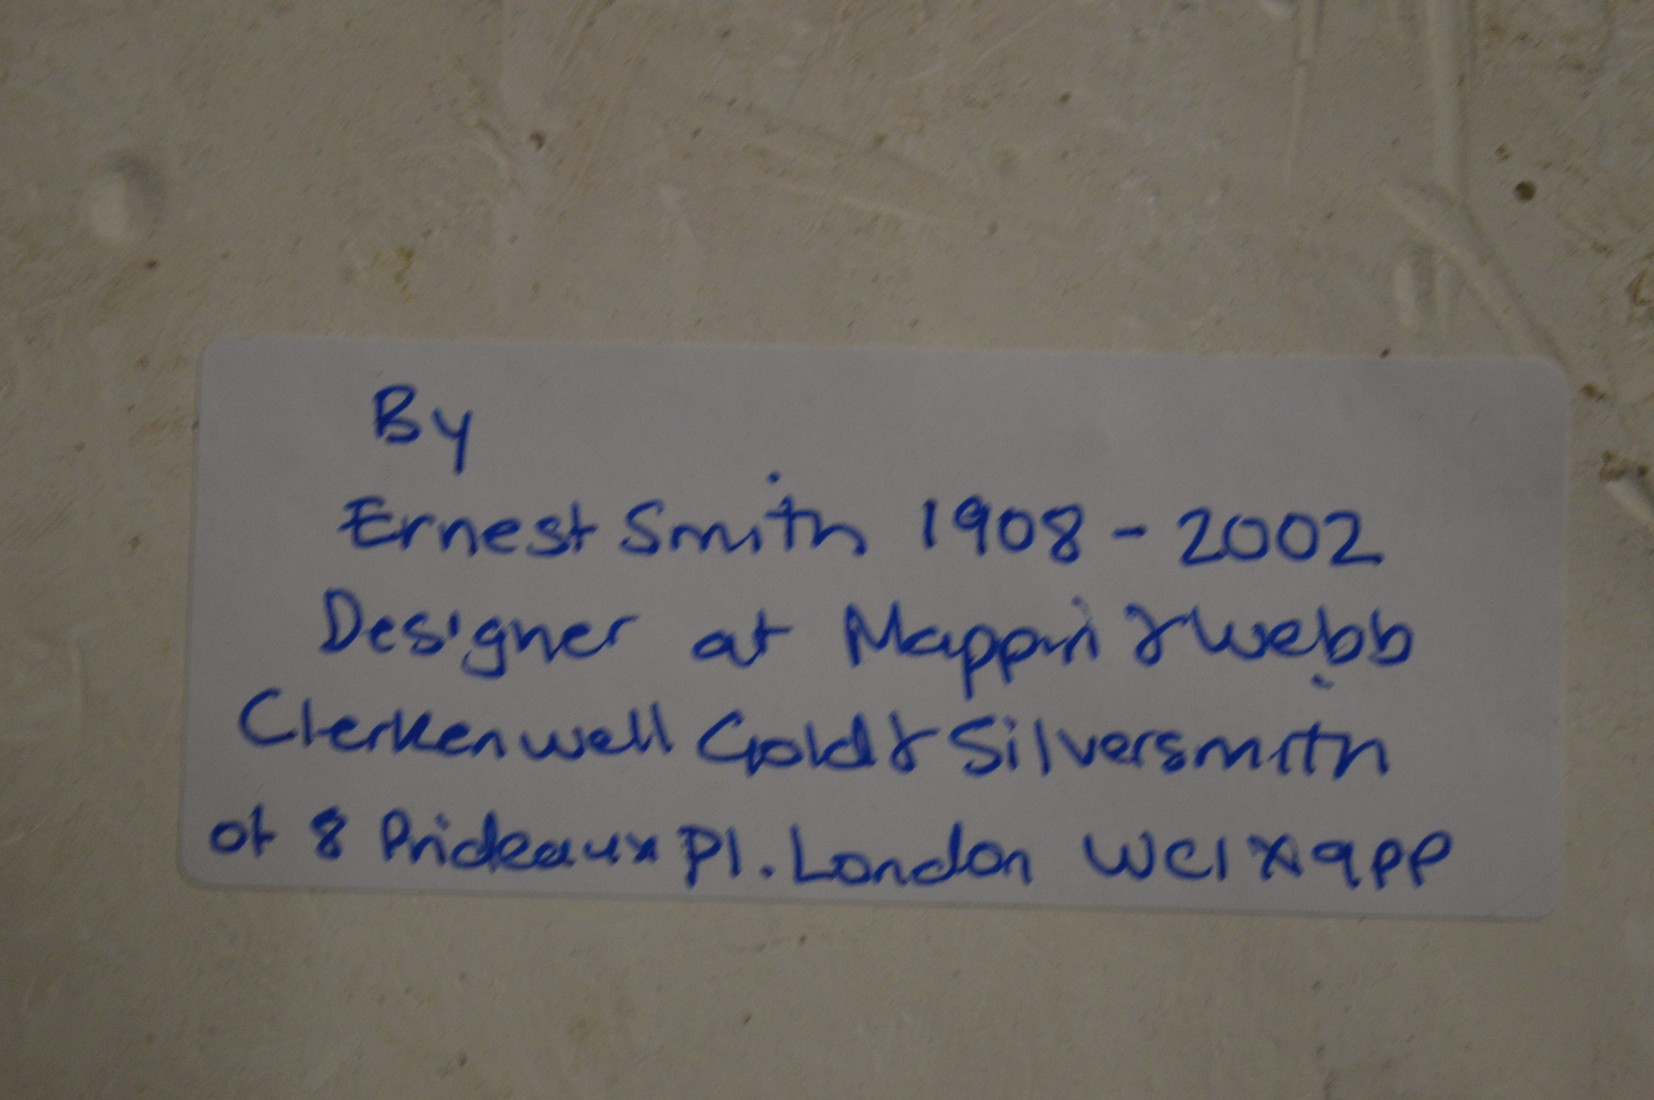 By
Ernest Smith 1908 - 2002
Designer at Mappin & Webb
Clerkenwell Gold & Silversmith
of 8 Prideaux Pl. London WC1X 9PP